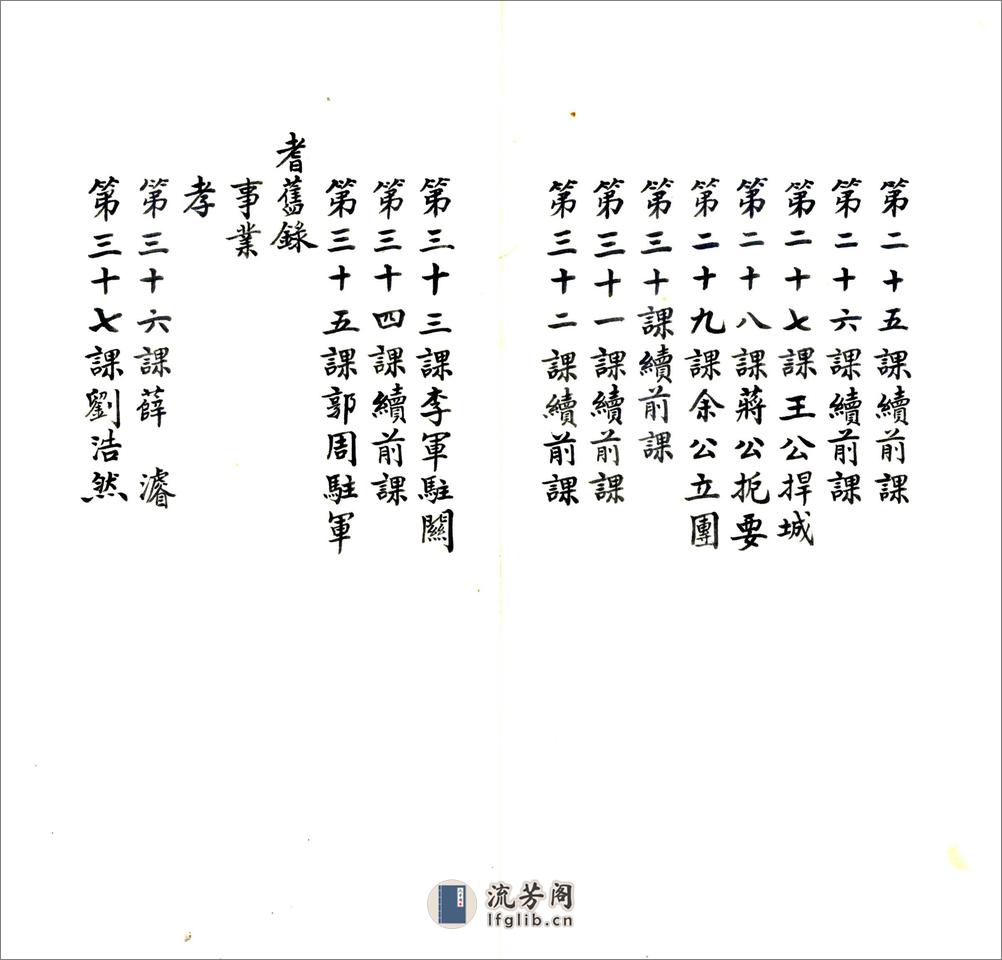 第二十五課續前課
第二十六課續前課
第二十七課王公捍城
第二十八課蔣公扼要
第二十九課余公立團
第三十課續前課
第三十一課續前課
第三十二課續前課
第三十三課李軍駐關
第三十四課續前課
第三十五課郭周駐軍
耆舊錄
事業
孝
第三十六課薛濬
第三十七課劉浩然
流芳阁
lfglib.cn